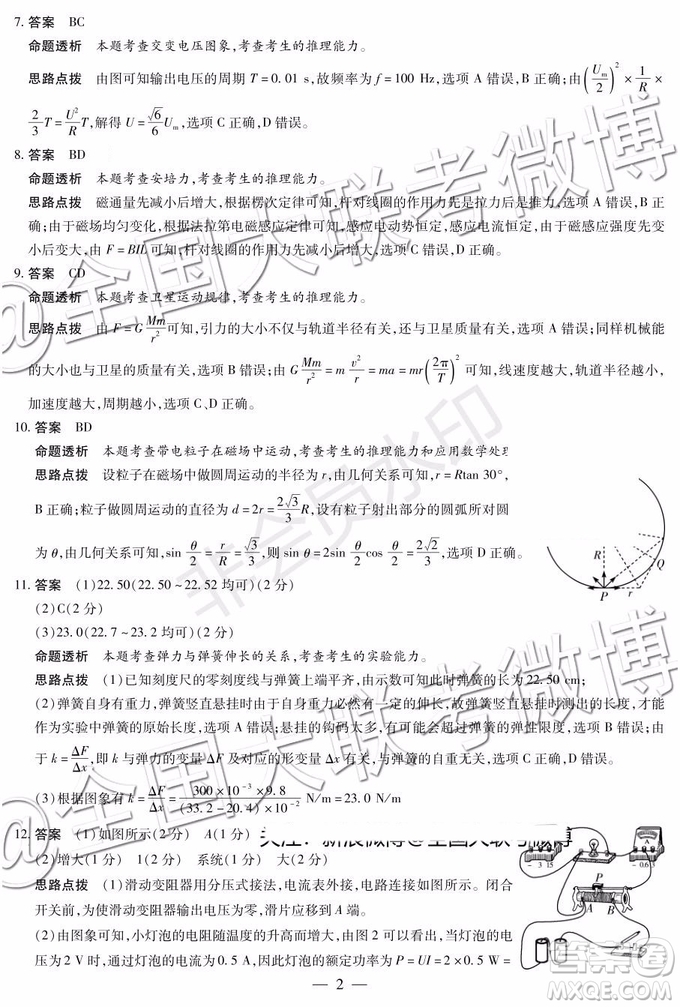 7. 答案 BC
命题透析 本题考查交变电压图象,考查考生的推理能力。
思路点拨 由图可知输出电压的周期 T = 0.01 s,故频率为 f = 100 Hz,选项 A 错误,B 正确;由(U_m/2)² × 1/R ×
2/3 T = U²/R T,解得 U = √6/6 U_m,选项 C 正确,D 错误。
8. 答案 BD
命题透析 本题考查安培力,考查考生的推理能力。
思路点拨 磁通量先减小后增大,根据楞次定律可知,杆对线圈的作用力先是拉力后是推力,选项 A 错误,B 正
确;由于磁场均匀变化,根据法拉第电磁感应定律可知,感应电动势恒定,感应电流恒定,由于磁感应强度先变
小后变大,由 F = BIL 可知,杆对线圈的作用力先减小后增大,选项 C 错误,D 正确。
9. 答案 CD
命题透析 本题考查卫星运动规律,考查考生的推理能力。
思路点拨 由 F = G Mm/r² 可知,引力的大小不仅与轨道半径有关,还与卫星质量有关,选项 A 错误;同样机械能
的大小也与卫星的质量有关,选项 B 错误;由 G Mm/r² = m v²/r = ma = mr(2π/T)² 可知,线速度越大,
加速度越大,周期越小,选项 C、D 正确。
10. 答案 BD
命题透析 本题考查带电粒子在磁场中运动,考查考生的推理能力和应用数学处理
思路点拨 设粒子在磁场中做圆周运动的半径为 r,由几何关系可知,r = Rtan 30°,
B 正确;粒子做圆周运动的直径为 d = 2r = 2√3/3 R,设有粒子射出部分的圆弧所对圆
为 θ,由几何关系可知,sin θ/2 = r/R = √3/3,则 sin θ = 2sin θ/2 cos θ/2 = 2√2/3,选项 D 正确。
R
Q
P
r
11. 答案 (1)22.50(22.50 ~ 22.52 均可)(2 分)
(2)C(2 分)
(3)23.0(22.7 ~ 23.2 均可)(2 分)
命题透析 本题考查弹力与弹簧伸长的关系,考查考生的实验能力。
思路点拨 (1)已知刻度尺的零刻度线与弹簧上端平齐,由示数可知此时弹簧的长度为 22.50 cm;
(2)弹簧自身有重力,弹簧竖直悬挂时由于自身重力必然有一定的伸长,故弹簧竖直悬挂时测出的长度,才能
作为实验中弹簧的原始长度,选项 A 错误;悬挂的钩码太多,有可能会超过弹簧的弹性限度,选项 B 错误;由
于 k = ΔF/Δx,即 k 与弹力的变量 ΔF 及对应的形变量 Δx 有关,与弹簧的自重无关,选项 C 正确。
(3)根据图象有 k = ΔF/Δx = 300×10⁻³×9.8/(33.2 - 20.4)×10⁻² N/m = 23.0 N/m
12. 答案 (1)如图所示(2 分) A(1 分)
(2)增大(1 分) 1(2 分) 系统(1 分) 大(2 分)
思路点拨 (1)滑动变阻器用分压式接法,电流表外接,电路连接如图所示。闭合
开关前,为使滑动变阻器输出电压为零,滑片应移到 A 端。
(2)由图象可知,小灯泡的电阻随温度的升高而增大,由图 2 可以看出,当灯泡的电
压为 2 V 时,通过灯泡的电流为 0.5 A,因此灯泡的功率为 P = UI = 2 × 0.5 W =
- 3 15
- 0.6 3
P
A
B
— 2 —
@全国大联考微博
@全国大联考微博
非会员水印